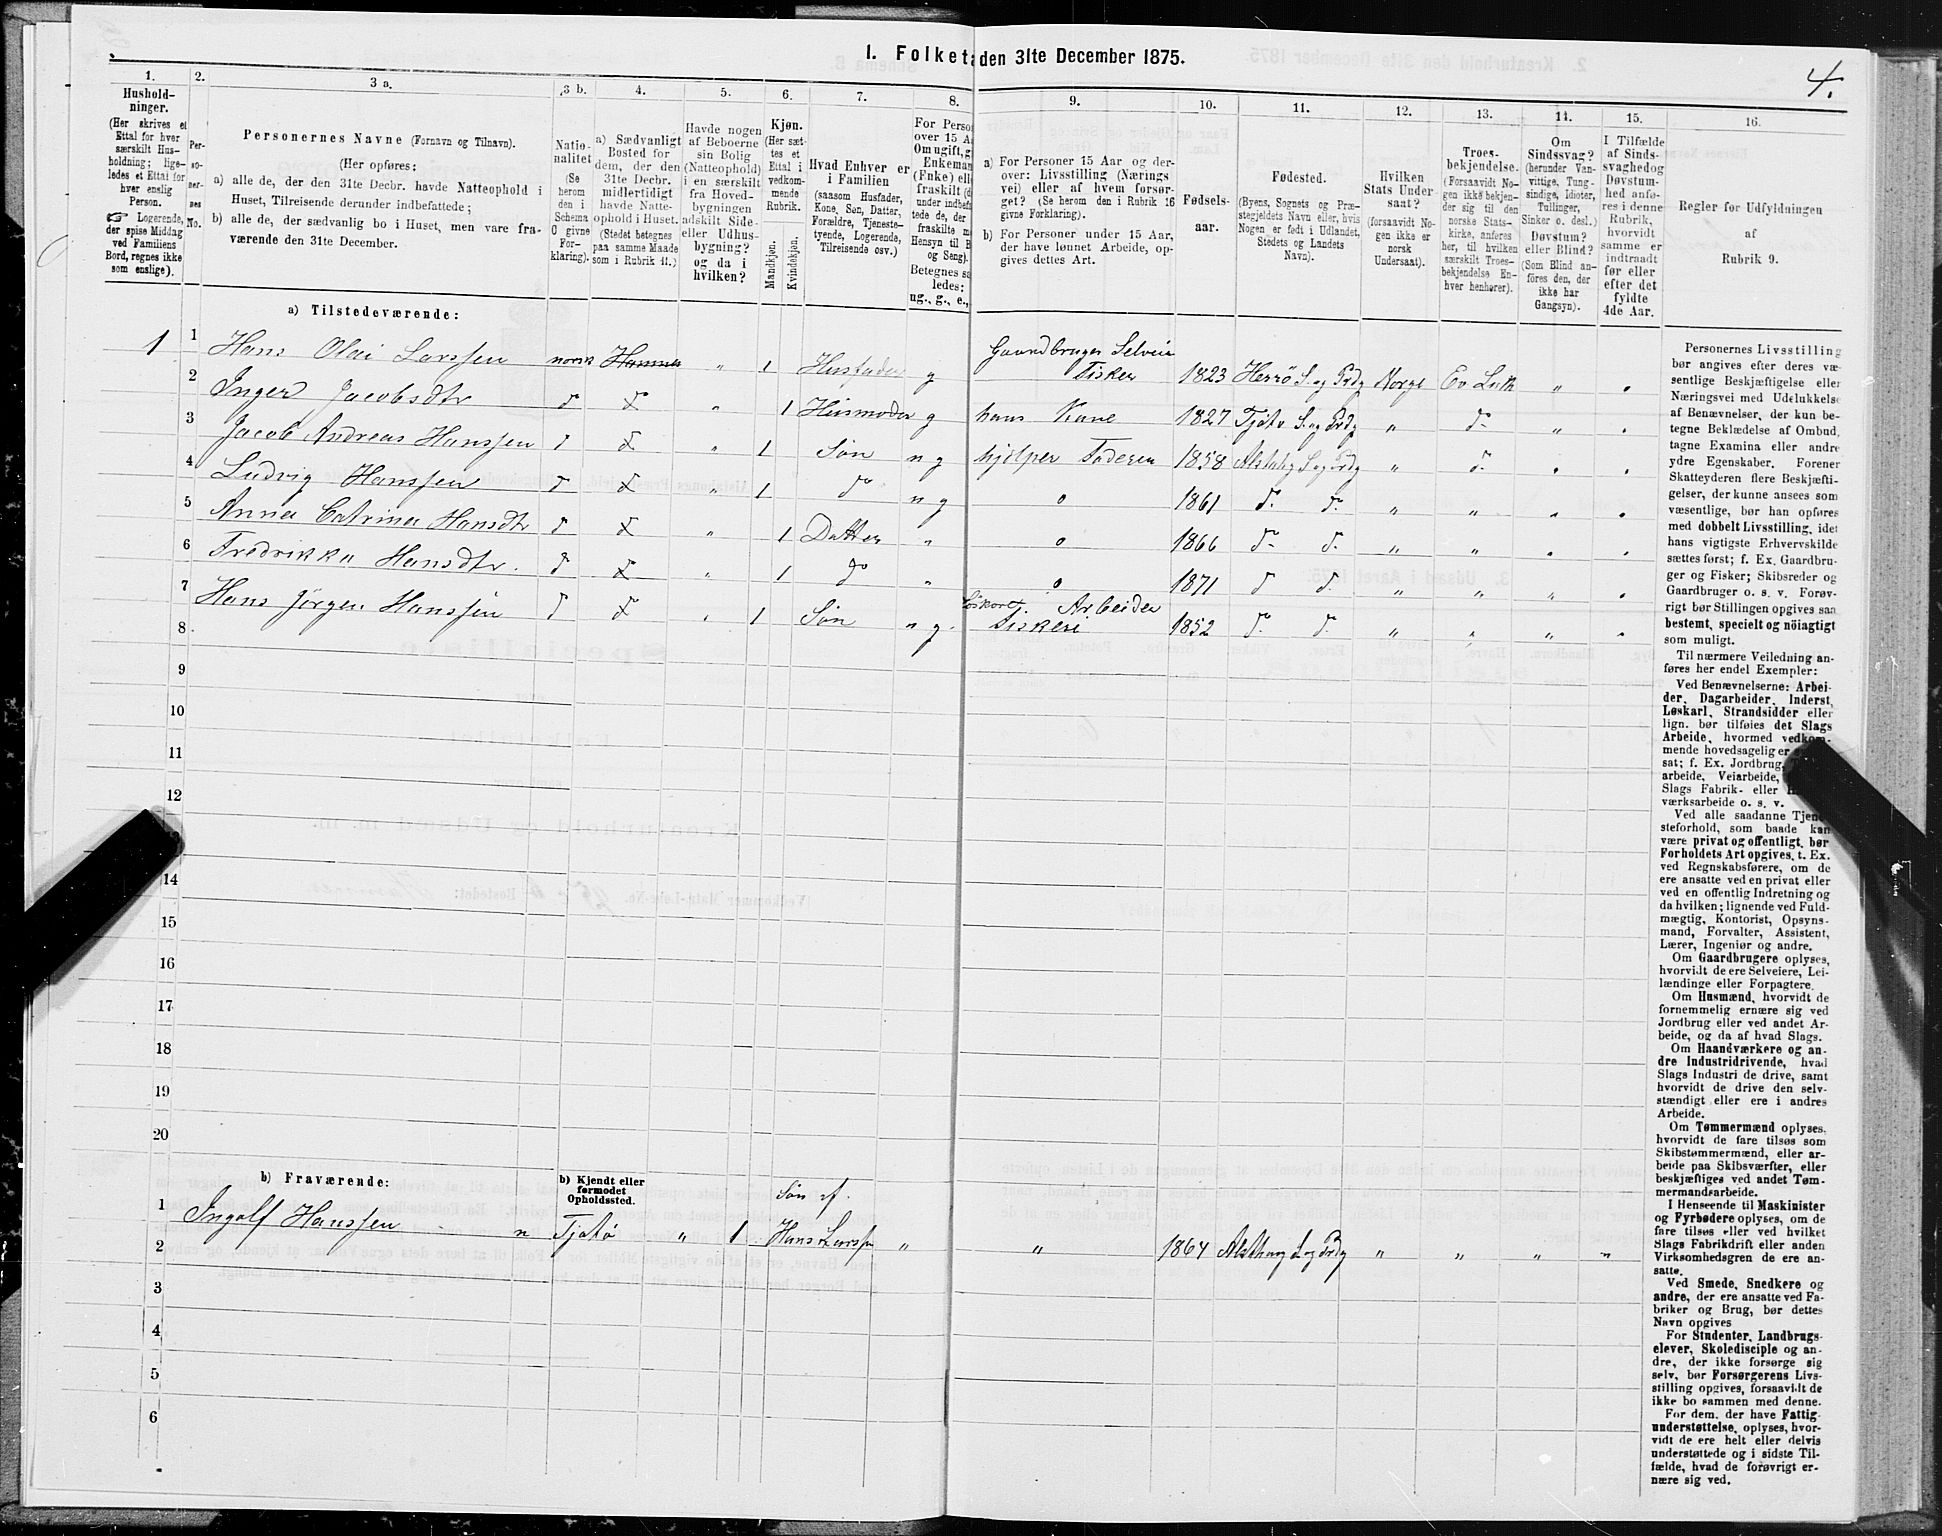 I. Folketæ den 31te December 1875.
4.
1.
Hushold-
ninger.
(Her skrives et
Ettal for hver
særskilt Hus-
holdning; lige-
ledes et Ettal for
hver enslig
Person.
Logerende,
der spise Middag
ved Familiens
Bord, regnes ikke
som enslige).
2.
Per-
so-
ner-
nes
No.
3 a.
Personernes Navne (Fornavn og Tilnavn).
(Her opføres:
a) alle de, der den 31te Decbr. havde Natteophold i
Huset, Tilreisende derunder indbefattede;
b) alle de, der sædvanlig bo i Huset, men vare fra-
værende den 31te December.
3 b.
Natio-
nalitet
(Se
herom
den i
Schema
O givne
For-
klaring).
4.
a) Sædvanligt
Bosted for
dem, der den
31te Decbr.
midlertidigt
havde Natte-
ophold i Huset.
(Stedet betegnes
paa samme Maade
som i Rubrik 11.)
5.
Havde nogen
af Beboerne
sin Bolig
(Natteophold)
i en særskilt
fra Hoved-
bygningen
adskilt Side-
eller Udhus-
bygning?
og da i
hvilken?
6.
Kjøn.
(Her sæt-
tes et
Ettal i
vedkom-
mende
Rubrik.
Mandkjøn.
Kvindekjøn.
7.
Hvad Enhver er
i Familien
(saasom Husfader,
Kone, Søn, Datter,
Forældre, Tjeneste-
tyende, Logerende,
Tilreisende osv.)
8.
For Perso
over 15 A
Om ugift, g
Enkeman
(Enke) elle
fraskilt (d
under indbefa
tede de, der
fraskilte m
Hensyn til B
og Seng).
Betegnes sa
ledes:
ug., g., e.,
9.
a) For Personer 15 Aar og der-
over: Livsstilling (Nærings
vei) eller af hvem forsør-
get? (Se herom den i Rubrik 16
givne Forklaring).
b) For Personer under 15 Aar,
der have lønnet Arbeide, op-
gives dettes Art.
10.
Fødsels-
aar.
11.
Fødested.
(Byens, Sognets og Præ-
stegjeldets Navn eller, hvis
Nogen er født i Udlandet,
Stedets og Landets
Navn).
12.
Hvilken
Stats Under-
saat?
(forsaavidt No-
gen ikke er
norsk
Undersaat).
13.
Troes-
bekjendelse.
(Forsaavidt No-
gen ikke bekjen-
der sig til den
norske Stats-
kirke, anføres
her, til hvilken
særskilt Troes-
bekjendelse En-
hver henhører).
14.
Om
Sindssvag?
(herunder Van-
vittige, Tung-
sindige, Idioter,
Tullinger,
Sinker o. desl.)
Døvstum?
eller Blind?
(Som Blind an-
føres den, der
ikke har
Gangsyn).
15.
I Tilfælde
af Sinds-
svaghed og
Døvstum-
hed anfø-
res i denne
Rubrik,
hvorvidt
samme er
indtraadt
før eller
efter det
fyldte
4de Aar.
16.
Regler for Udfyldningen
af
Rubrik 9.
a) Tilstedeværende:
1 1 Hans Olai Larssen norsk Hamnes " 1 Husfader g Gaardbruger Selveier Fisker 1823 Herrö S. og Prdg Norge Ev Luth " "
2 Inger Jacobsdtr d d " 1 Husmoder g hans Kone 1827 Tjøtø S. og Prdg " d " "
3 Jacob Andreas Hanssen d d " 1 Søn ug hjelper Faderen 1858 Alstahg S og Prdg " d " "
4 Ludvig Hanssen d d " 1 d ug o 1861 d d " " " "
5 Anna Catrina Hansdtr d d " 1 Datter " o 1866 d d " " " "
6 Fredrikka Hansdtr. d d " 1 d " o 1871 d d " " " "
7 Hans Jörgen Hanssen d d " 1 Søn ug. Löskarl. Arbeider Fiskeri 1852 d d " " " "
8
9
10
11
12
13
14
15
16
17
18
19
20
b) Fraværende:
b) Kjendt eller
formodet
Opholdssted.
1 Ingolf Hanssen n Tjøtø " 1 Søn af Hans Larssen " " 1864 Alsthaug S og Prdg " " " "
2
3
4
5
6
Personernes Livsstilling
bør angives efter deres væ-
sentlige Beskjæftigelse eller
Næringsvei med Udelukkelse
af Benævnelser, der kun be-
tegne Beklædelse af Ombud,
tagne Examina eller andre
ydre Egenskaber. Forener
Skatteyderen flere Beskjæfti-
gelser, der kunne ansees som
væsentlige, bør han opføres
med dobbelt Livsstilling, idet
hans vigtigste Erhvervskilde
sættes først; f. Ex. Gaardbru-
ger og Fisker; Skibsreder og
Gaardbruger o. s. v. Forøv-
rigt bør Stillingen opgives saa
bestemt, specielt og nöiagtigt
som muligt.
Til nærmere Veiledning an-
føres her endel Exempler:
Ved Benævnelserne: Arbei-
der, Dagarbeider, Inderst,
Løskarl, Strandsidder eller
lign. bør tilføies det Slags
Arbeide, hvormed vedkom-
mende hovedsagelig er
sat; f. Ex. Jordbrug,
arbeide, Veiarbeide,
Slags Fabrik- eller
værksarbeide o. s. v.
Ved alle saadanne Tjene-
steforhold, som baade kan
være privat og offentligt, bør
Forholdets Art opgives, t. Ex.
ved Regnskabsførere, om de
ere ansatte ved en privat eller
ved en offentlig Indretning og
da hvilken; lignende ved Fuld-
mægtig, Kontorist, Opsyns-
mand, Forvalter, Assistent,
Lærer, Ingeniør og andre.
Om Gaardbrugere oplyses,
hvorvidt de ere Selveiere, Lei-
lændinge eller Forpagtere.
Om Husmænd, hvorvidt de
fornemmelig ernære sig ved
Jordbrug eller ved andet Ar-
beide, og da af hvad Slags.
Om Haandværkere og an-
dre Industridrivende, hvad
Slags Industri de drive, samt
hvorvidt de drive den selv-
stændigt eller ere i andres
Arbeide.
Om Tømmermænd oplyses,
hvorvidt de fare tilsøs som
Skibstømmermænd, eller ar-
beide paa Skibsværfter, eller
beskjæftiges ved andet Tøm-
mermandsarbeide.
I Henseende til Maskinister
og Fyrbødere oplyses, om de
fare tilsøs eller ved hvilket
Slags Fabrikdrift eller anden
Virksomhedsgren de ere an-
satte.
Ved Smede, Snedkere og
andre, der ere ansatte ved Fa-
briker og Brug, bør dettes
Navn opgives
For Studenter, Landbrugs-
elever, Skoledisciple og an-
dre, der ikke forsørge sig
selv, bør Forsørgerens Livs-
stilling opgives, forsaavidt de
ikke bo sammen med denne.
For dem, der have Fattig-
understøttelse, oplyses, hvor-
vidt de ere helt eller delvis
understøttede og i sidste Til-
fælde, hvad de forøvrigt er-
nære sig ved.